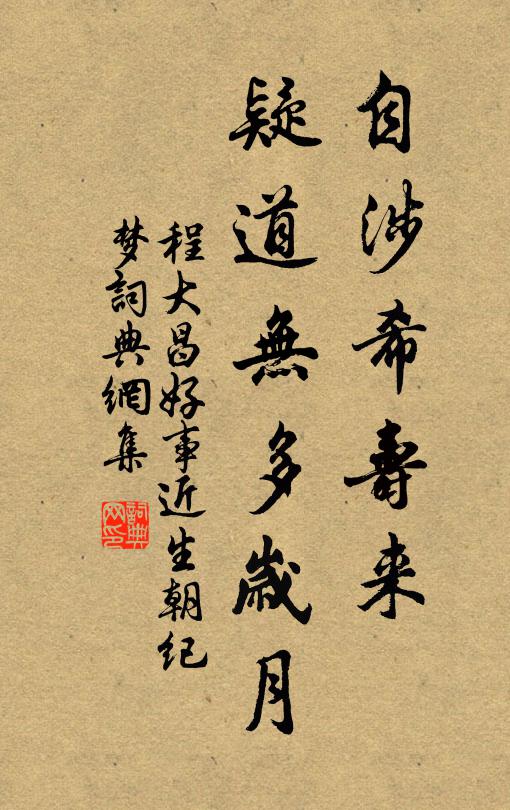 自涉希壽来
疑道無多歲月
程大昌好事近生朝纪
梦詞典網集
詞典网印